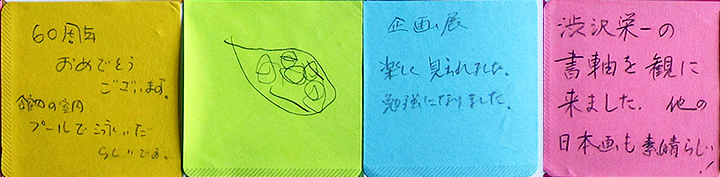 60周年
おめでとう
ございます。
プールで
らしいです。
企画展
楽しく見られました。
勉強になりました。
渋沢栄一の
書軸を観に
来ました. 他の
日本画も素晴らしい!